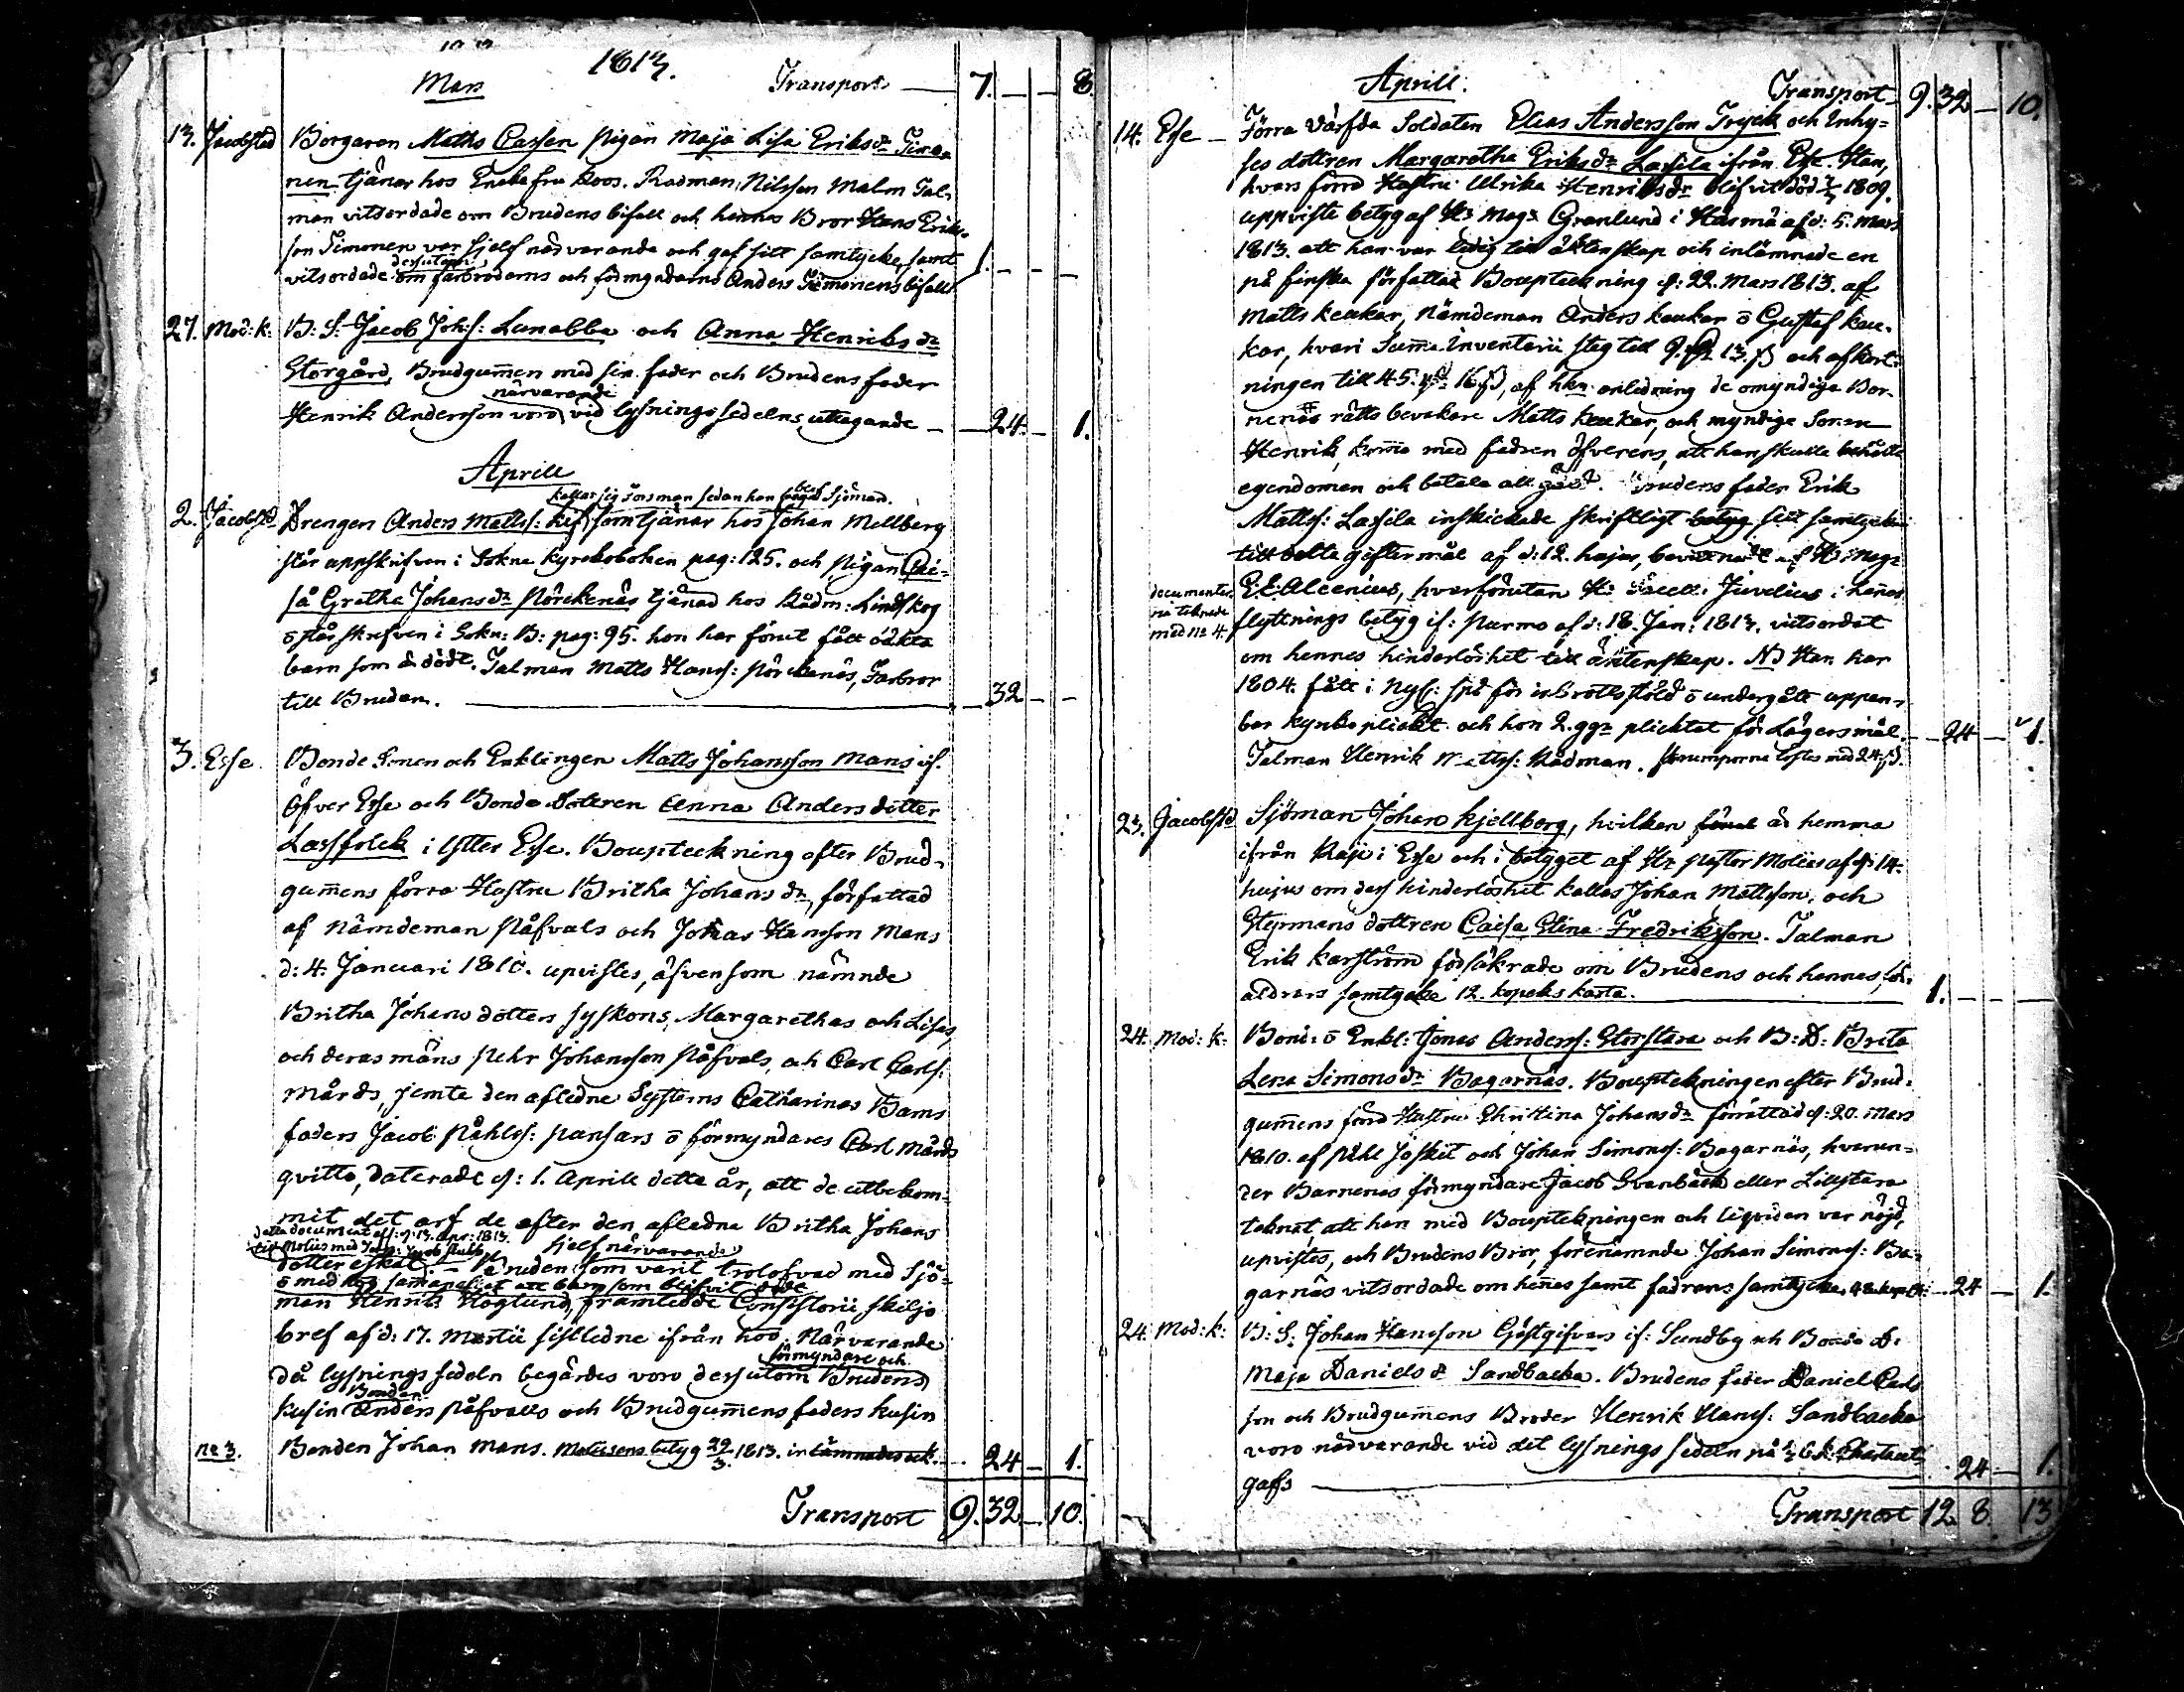 1813.
Mars Transport — 7. — — 8.
13. Jacobstad Borgaren Matts Cassen pigan Maja Lisa Eriksdr Timo
nen tjänar hos Enkefru Roos. Rådman Nilsson Malm Tal-
man vitsordade om Brudens bifall och hennes Bror Hans Eriks-
son Timonen var sjelf närvarande och gaf sitt samtycke, samt
dessutom
vitsordade om farbrodrens och förmyndarens Anders Timonens bifall 1. — — —
27. Mod: k: B: S: Jacob Joh:s: Lunabba och Anna Henriks dr
Storgård, Brudgumen med sin fader och Brudens fader
närvarande
Henrik Andersson voro vid lysningssedelns uttagande — — 24. — 1.
Aprill
kallar sig Forsman sedan han blef Sjöman.
2. Jacobst: Drengen Anders Matts: som tjänar hos Johan Mellberg
står uppskrifven i Sokne kyrkoboken pag: 125. och pigan Cai-
sa Gretha Johans dr Pörckenäs tjänad hos Rådm: Lindskog
ö står skrifven i Sokn: B: pag: 95. hon har förut fått oäkta
barn som är dödt. Talman Matts Hans: Pörckenäs, Farbror
till Bruden. — — 32 — —
3. Esse. Bonde Sonen och Enklingen Matts Johansson Mans if.
Öfver Esse och Bonde dottren Anna Anders dotter
Lassfolck i Ytter Esse. Boupteckning efter Brud-
gumens förra Hustru Britha Johans dr, författad
af Nämdeman Påfvals och Jonas Hansson Mans
d: 4. Januari 1810. upvistes, äfvensom nämnde
Britha Johans dotters syskons, Margarethas och Lisas,
och deras mäns Pehr Johansson Påfvals, och Carl Carls:
Mårds, jemte den aflidne Systerns Catharinas Barns
faders Jacob Påhls: Pansars ö förmyndares Carl Mårds
qvitto, daterade d: 1. Aprill detta år, att de utbekom-
mit det arf de efter den aflidna Britha Johans
detta document d: 13. Apr: 1813.
till Molius med Jacob Stubb
sjelf närvarande
dotter eskat. — Bruden som varit trolofvad med Sjö-
ö med hög sammanaflat ett barn som blifvit
man Henrik Höglund, framtedde Consistorii skiljo
bref af d: 17. Martii sistledne ifrån hos. Närvarande
förmyndare och
då lysnings sedeln begärdes voro dessutom Brudens
Bonden
kusin Anders Påfvals och Brudgumens faders kusin
No 3. Bonden Johan Mans. betyg 29/3 1813. inlämnades ock. — 24 — 1.
Transport 9. 32 — 10.
Aprill. Transport 9. 32 — 10.
14. Esse — Förra Värfda Soldaten Elias Andersson Tryck och Inhy-
ses dottren Margaretha Eriks dr Lassila ifrån Esse. Han,
hvars förra Hustru Ulrika Henriks dr blifvit död 1809.
uppviste betyg af Hr Mag: Granlund i Härmä af d: 5. Mars
1813. att han var ledig till äktenskap och inlämnade en
på finska författad Boupteckning d: 22. Mars 1813. af
Matts Keukar, Nämdeman Anders Keukar ö Gustaf Keu-
kar, hvari Summa Inventarii steg till 9. 13. ß och afkort-
ningen till 45. 16 ß, af hkn anledning de omyndige Bar-
nens rätts bevakare Matts Keukar, och myndige Sonen
Henrik, komo med fadren öfverens, att han skulle behålla
egendomen och betala all gäld. Brudens fader Erik
Matts: Lassila inskickade skriftligt betyg sitt samtycke
till detta giftermål af d: 12. hujus, af Hr Mag:
documenten
med No 4.
G. E. Alcenius, hvarförutan Hr Sacell. Juvelius i hänes
flyttnings betyg if: Purmo af d: 18. Jan: 1813. vitsordat
om hennes hinderlöshet till äktenskap. NB Han har
1804. fått i Nyk: spö för inbrotts stöld ö undergått uppen-
bar kyrkoplickt och hon 2. ggr plicktat för Lägersmål. — 24 — 1.
Talman Henrik Matts: Rådman. Strumporna löstes med 24. ß.
23. Jacobstd Sjöman Johan Kjellberg, hvilken förut är hemma
ifrån Kaji i Esse och i betyget af Hr Pastor Molius af d: 14.
hujus om dess hinderlöshet kallas Johan Mattsson, och
Styrmans dottren Caisa Stina Fredriksson. Talman
Erik Karström försäkrade om Brudens och hennes för-
äldrars samtycke 12. kopeks karta. — 1. — — —
24. Mod: k: Bond: ö Enkl: Jonas Anders: Storstara och B: D: Brita
Lena Simons dr Bagarnäs. Bouptekningen efter Brud-
gumens förra Hustru Christina Johans dr författad d: 20. Mars
1810. af Påhl Joskit och Johan Simons: Bagarnäs, hvarun-
der Barnenes förmyndare Jacob Svanbäck eller Lillstara
teknat, att han med Bouptekningen och liqviden var nöjd,
upvistes, och Brudens Bror, förenämnde Johan Simons: Ba-
garnäs vitsordade om hennes samt fadrens samtycke. — 24 — 1.
24. Mod: k: B: S: Johan Hansson Gästgifvars if: Sundby och Bonde D:
Maja Daniels dr Sandbacka. Brudens fader Daniel Carls
son och Brudgumens Broder Henrik Hans: Sandbacka
voro närvarande vid det lysnings sedeln på
gafs — — 24 — 1.
Transport 12 8. 13